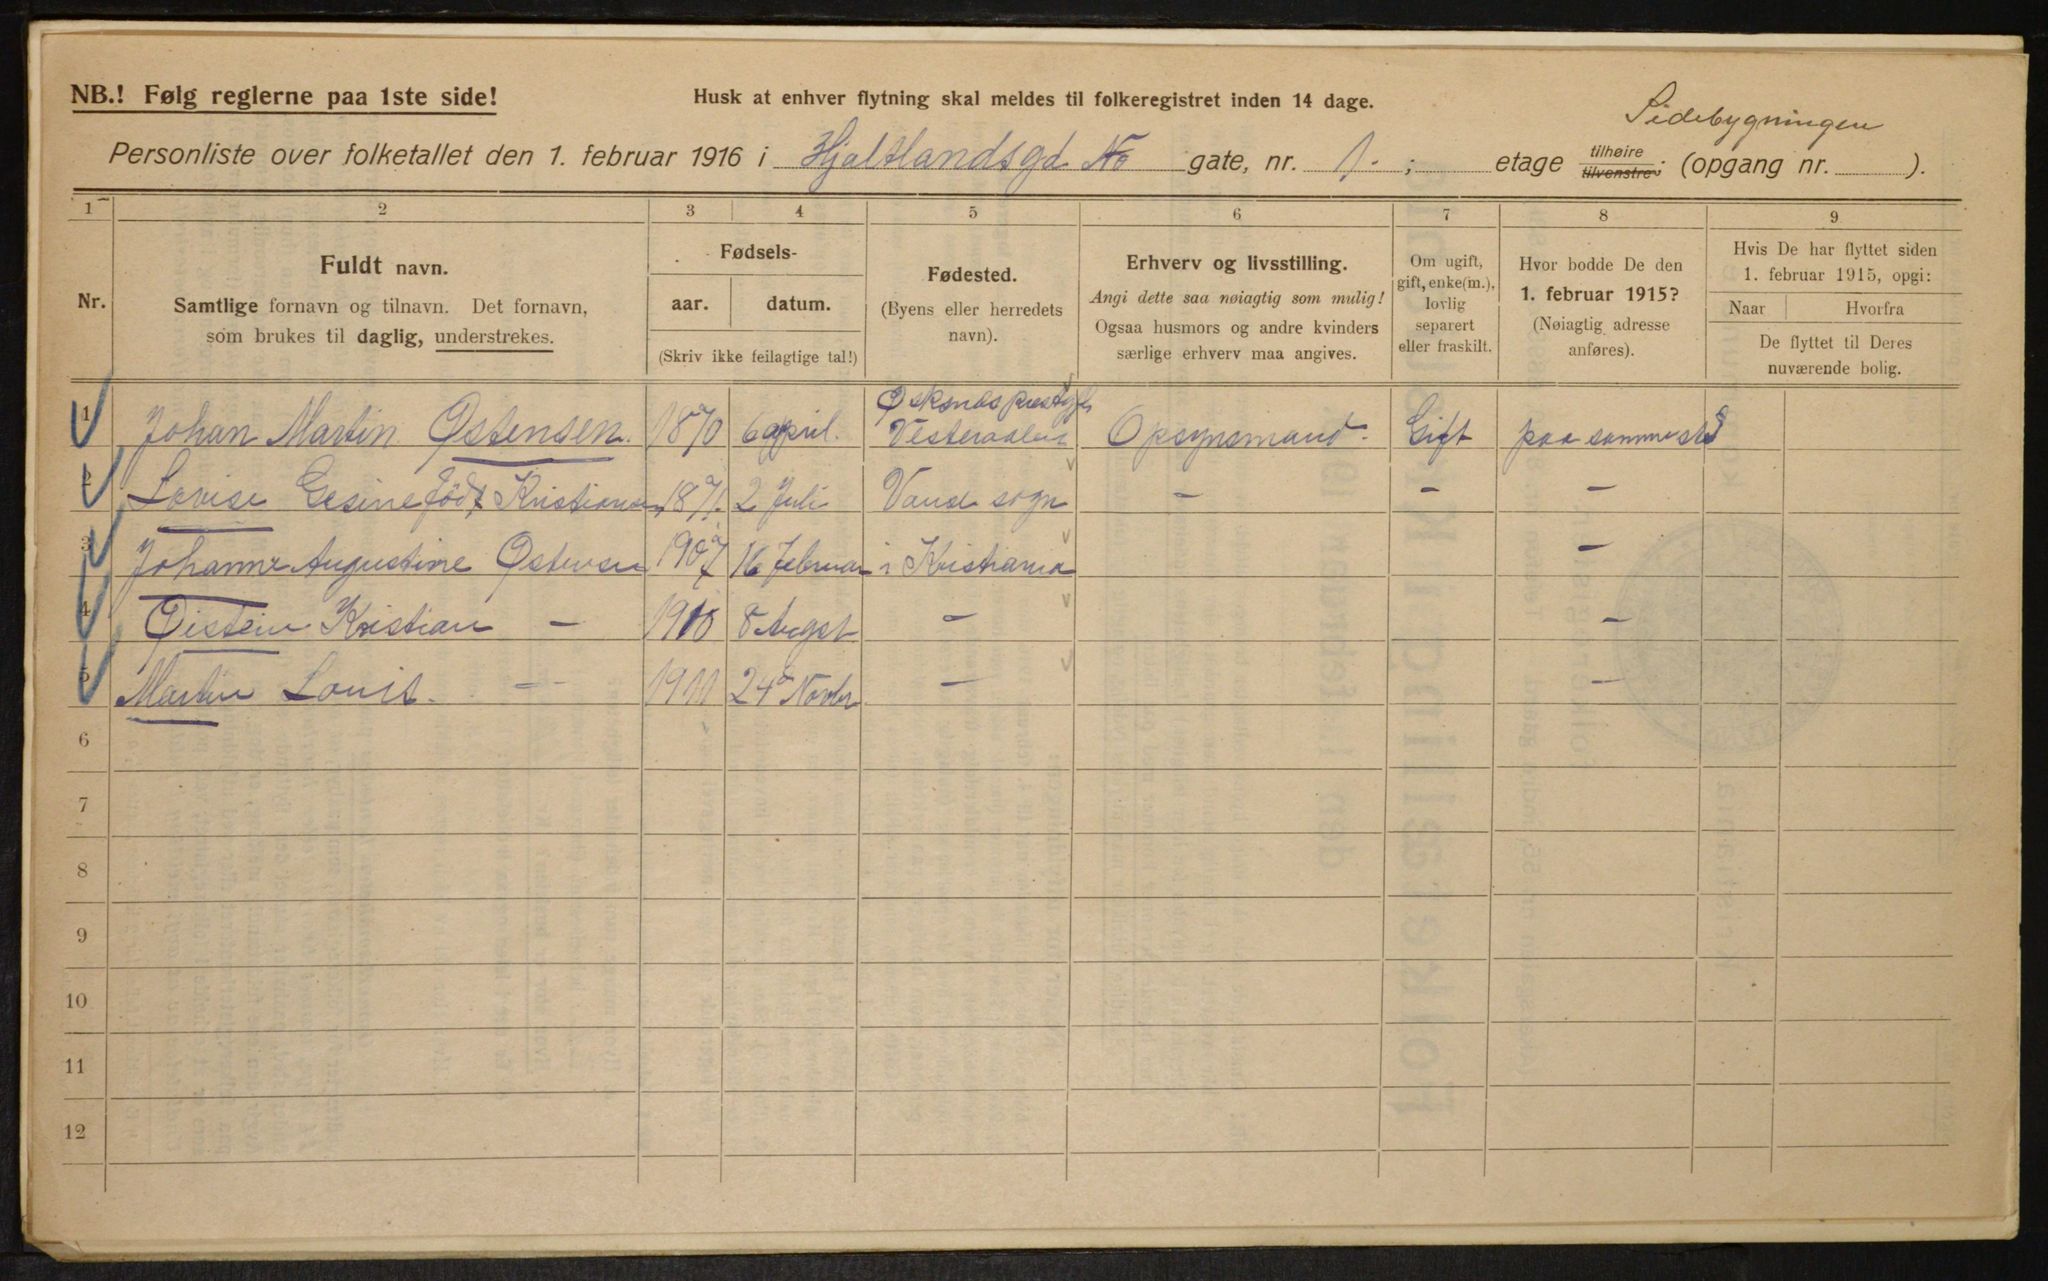 NB.! Følg reglerne paa 1ste side!
Husk at enhver flytning skal meldes til folkeregistret inden 14 dage.
Sidebygningen
Personliste over folketallet den 1. februar 1916 i Hjaltlandsgd No gate, nr. 1. ; etage tilhøire tilvenstre; (opgang nr. ).
1 2 3 4 5 6 7 8 9
Nr.
Fuldt navn.
Samtlige fornavn og tilnavn. Det fornavn,
som brukes til daglig, understrekes.
Fødsels-
aar. datum.
(Skriv ikke feilagtige tal!)
Fødested.
(Byens eller herredets
navn).
Erhverv og livsstilling.
Angi dette saa nøiagtig som mulig!
Ogsaa husmors og andre kvinders
særlige erhverv maa angives.
Om ugift,
gift, enke(m.),
lovlig
separert
eller fraskilt.
Hvor bodde De den
1. februar 1915?
(Nøiagtig adresse
anføres).
Hvis De har flyttet siden
1. februar 1915, opgi:
Naar Hvorfra
De flyttet til Deres
nuværende bolig.
1 Johan Martin Østensen. 1870 6 april. Øksnes prestgj Vesteraalen Opsynsmand. Gift paa samme sted
2 Lovise Gesine født Kristiansen 1871. 2 Juli Vanse sogn – – –
3 Johanne Augustine Østensen 1907 16 Februar i Kristiania –
4 Øistein Kristian – 1910 8 Augst – –
5 Martin Louis. – 1911 24 Novbr – –
6
7
8
9
10
11
12